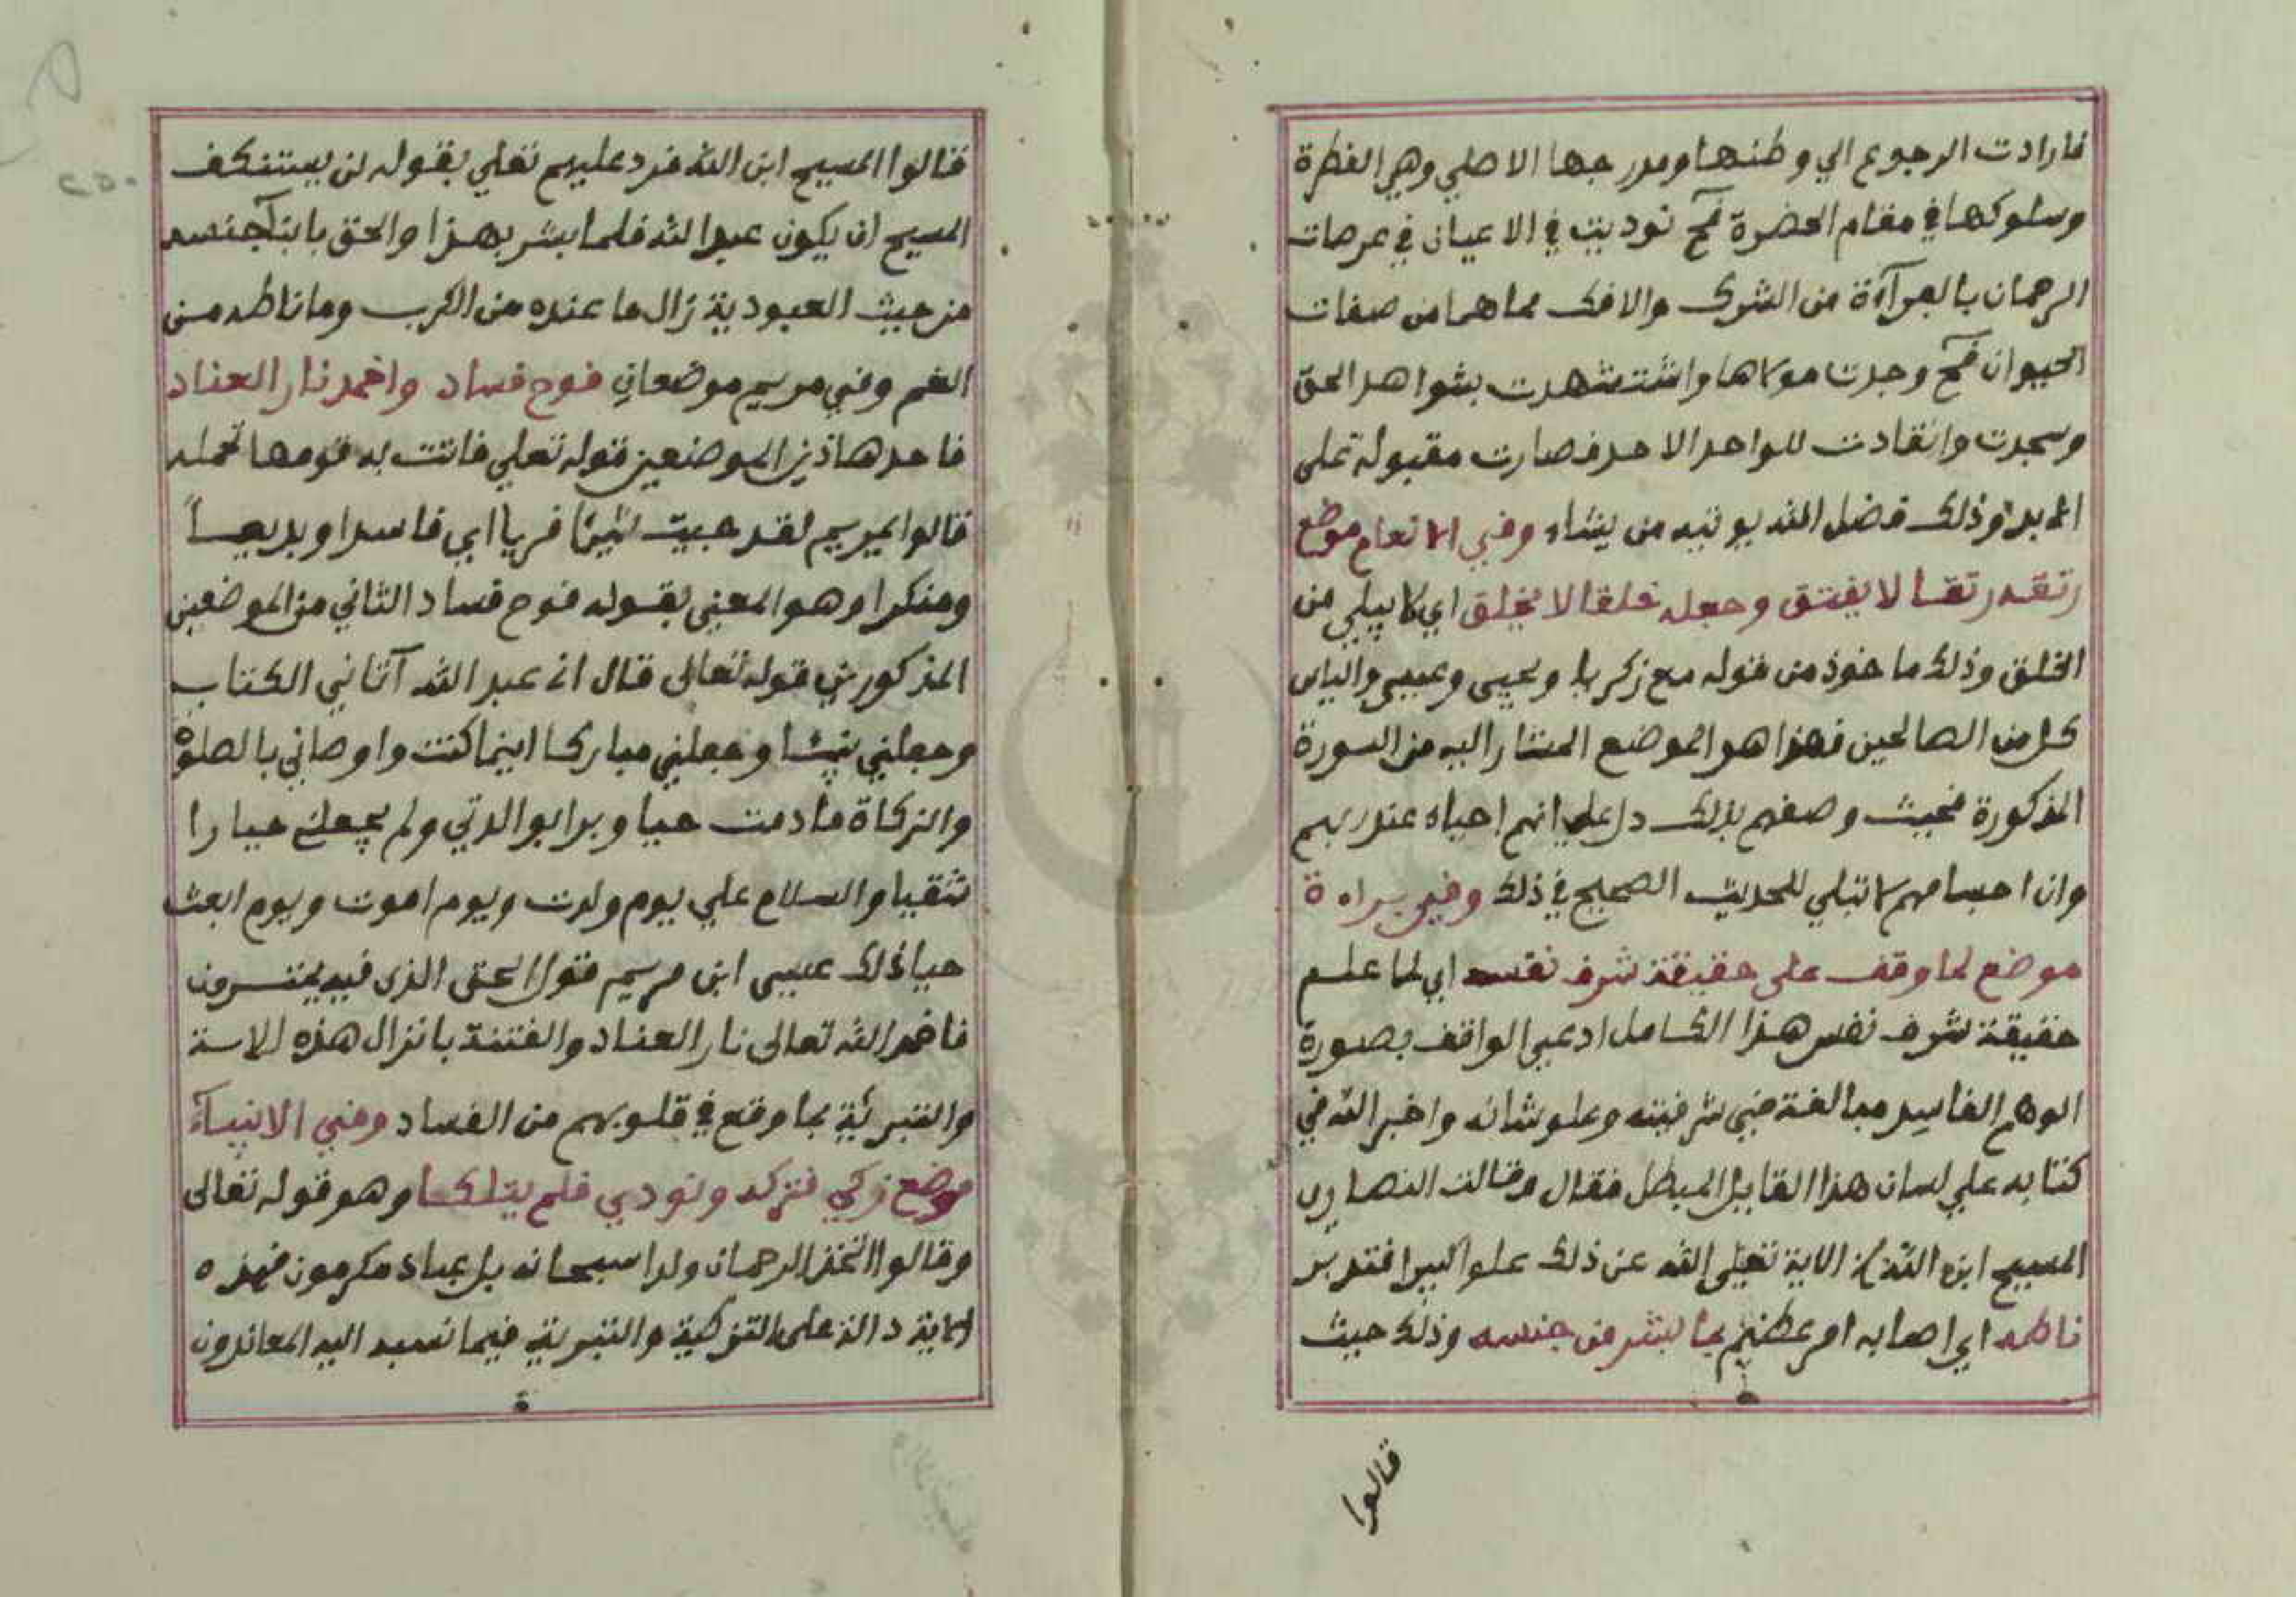 فارادت الرجوع الي وطنها ومدرجها الاصلي وهي الفطرة
وسلوكها في مقام الحضرة فح نوديت في الاعيان في عرصات
الرحمان بالبرآءة من الشرك والافك مما هما من صفات
الحيوان فح وجدت مولاها واستشهدت بشواهد الحق
وسجدت وانقادت للواحد الاحد فصارت مقبولة على
الابد وذلك فضل الله يوتيه من يشاء وفي الانعام موضع
رتقه رتقا لا يفتق وجعله خلقا لا يخلق اي لا يبلي من
الخلق وذلك ماخوذ من قوله مع زكريا ويحيى وعيسى والياس
كل من الصالحين فهذا هو الموضع المشار اليه من السورة
المذكورة فحيث وصفهم بذلك دل علي انهم احياء عند ربهم
وان اجسامهم لا تبلي للحديث الصحيح في ذلك وفي براءة
موضع لما وقف على حقيقة شرف نفسه اي لما علم
حقيقة شرف نفس هذا الكامل ادعي الواقف بصورة
الوهم الفاسد مبالغة في شرفيته وعلو شانه واخبر الله في
كتابه علي لسان هذا القايل المبطل فقال وقالت النصاري
المسيح ابن الله الاية تعلى الله عن ذلك علوا كبيرا فتدبر
ناطه اي اصابه امر عظيم بما لبشر من جنسه وذلك حيث
قالوا
فقالوا المسيح ابن الله فرد عليهم تعلي بقوله لن يستنكف
المسيح ان يكون عبدا لله فلما بشر بهذا والحق بابنآ جنسه
من حيث العبودية زال ما عنده من الكرب وما ناطه من
الغم وفي مريم موضعان فوح فساد واخمد نار العناد
فاحد هاذين الموضعين قوله تعلي فاتت به قومها تحمله
قالوا يمريم لقد جيت شيئا فريا اي فاسدا وبديعاً
ومنكرا وهو المعني بقوله فوح فساد الثاني من الموضعين
المذكورين قوله تعالى قال اني عبد الله آتاني الكتاب
وجعلني نبيئا وجعلني مباركا اينما كنت واوصاني بالصلوة
والزكاة مادمت حيا وبرا بوالدتي ولم يجعلني جبارا
شقيا والسلام علي يوم ولدت ويوم اموت ويوم ابعث
حيا ذلك عيسى ابن مريم قول الحق الذي فيه يمترون
فاخمد الله تعالى نار العناد والفتنة بانزال هذه الاية
والتبرئة بما وقع في قلوبهم من الفساد وفي الانبيآء
موضع زكي فتزكه ونودي فلم يتلكا وهو قوله تعالى
وقالوا اتخذ الرحمان ولدا سبحانه بل عباد مكرمون فهذه
الاية دالة على التزكية والتبرية فيما نسبه اليه المعاندون